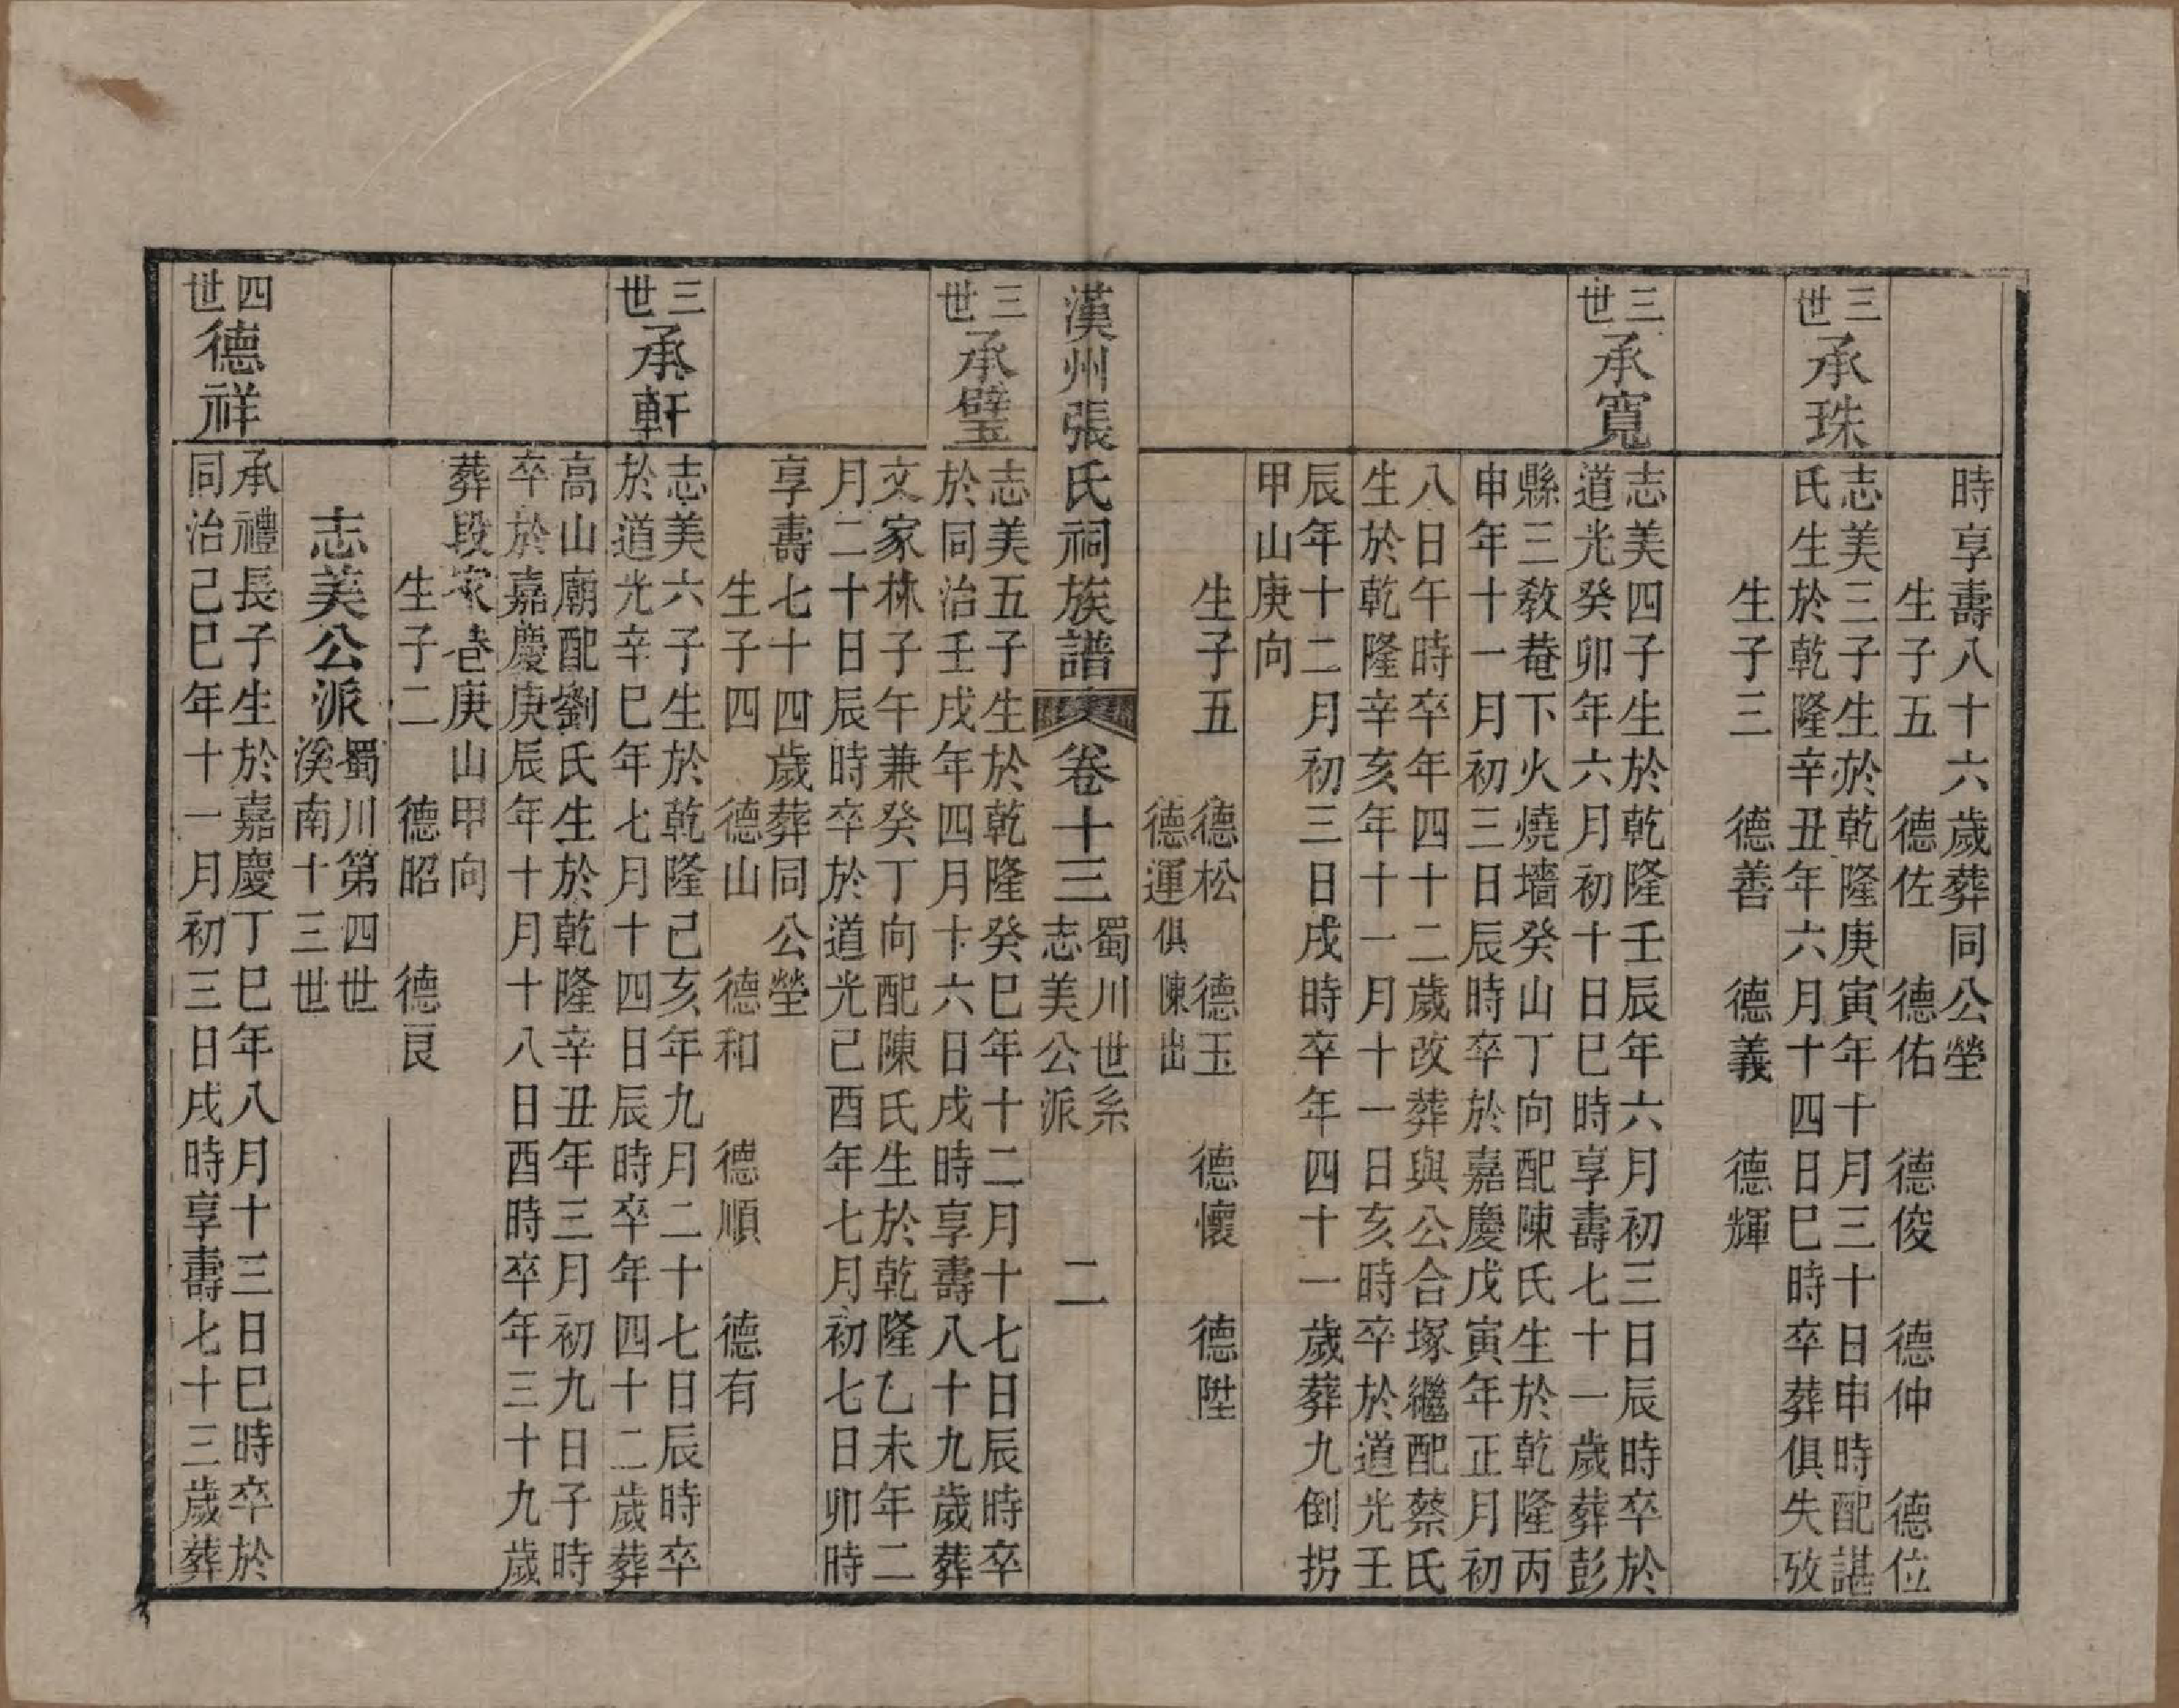 時享壽八十六歲葬同公塋
生子五 德佐 德佑 德俊 德仲 德位
三世 承珠
志美三子生於乾隆庚寅年十月三十日申時配諶
氏生於乾隆辛丑年六月十四日巳時卒葬俱失攷
生子三 德善 德義 德輝
三世 承寬
志美四子生於乾隆壬辰年六月初三日辰時卒於
道光癸卯年六月初十日巳時享壽七十一歲葬彭
縣三教菴下火燒墻癸山丁向配陳氏生於乾隆丙
申年十一月初三日辰時卒於嘉慶戊寅年正月初
八日午時卒年四十二歲改葬與公合塚繼配蔡氏
生於乾隆辛亥年十一月十一日亥時卒於道光壬
辰年十二月初三日戌時卒年四十一歲葬九倒拐
甲山庚向
生子五 德松 德玉 德懷 德陞
德運俱陳出
漢州張氏祠族譜 卷十三 蜀川世系 志美公派 二
三世 承璧
志美五子生於乾隆癸巳年十二月十七日辰時卒
於同治壬戌年四月十六日戌時享壽八十九歲葬
文家林子午兼癸丁向配陳氏生於乾隆乙未年二
月二十日辰時卒於道光己酉年七月初七日卯時
享壽七十四歲葬同公塋
生子四 德山 德和 德順 德有
三世 承軒
志美六子生於乾隆己亥年九月二十七日辰時卒
於道光辛巳年七月十四日辰時卒年四十二歲葬
高山廟配劉氏生於乾隆辛丑年三月初九日子時
卒於嘉慶庚辰年十月十八日酉時卒年三十九歲
葬段家巷庚山甲向
生子二 德昭 德良
志美公派 蜀川第四世
溪南十三世
四世 德祥
承禮長子生於嘉慶丁巳年八月十三日巳時卒於
同治己巳年十一月初三日戌時享壽七十三歲葬